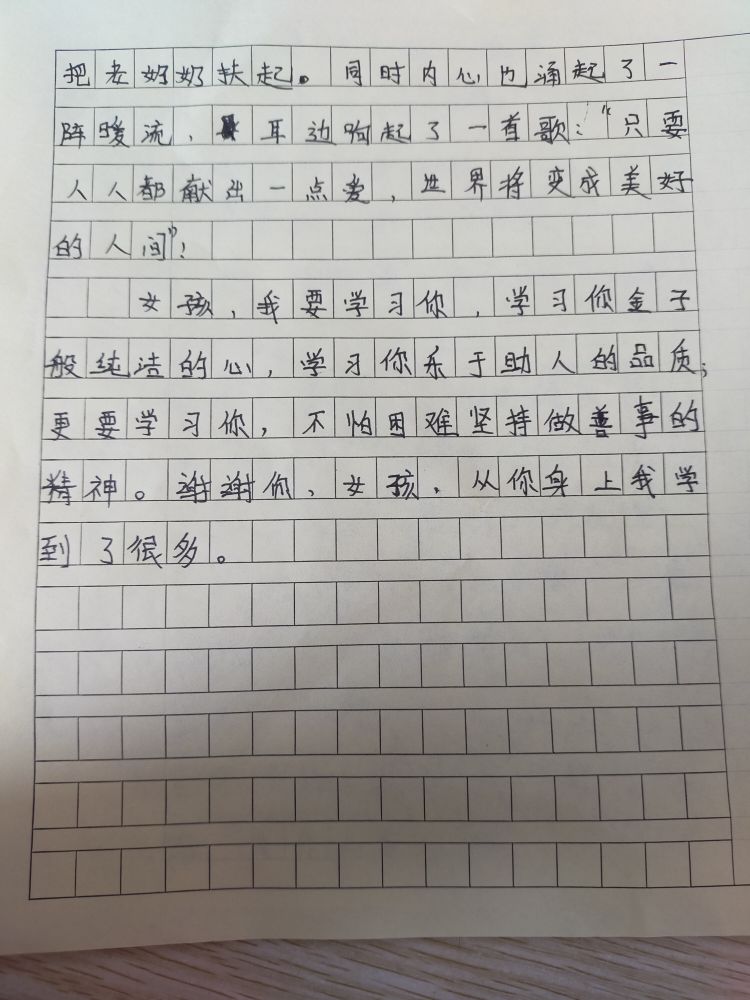 把老奶奶扶起。同时内心也涌起了一
阵暖流，耳边响起了一首歌：“只要
人人都献出一点爱，世界将变成美好
的人间”！
女孩，我要学习你，学习你金子
般纯洁的心，学习你乐于助人的品质；
更要学习你，不怕困难坚持做善事的
精神。谢谢你，女孩，从你身上我学
到了很多。